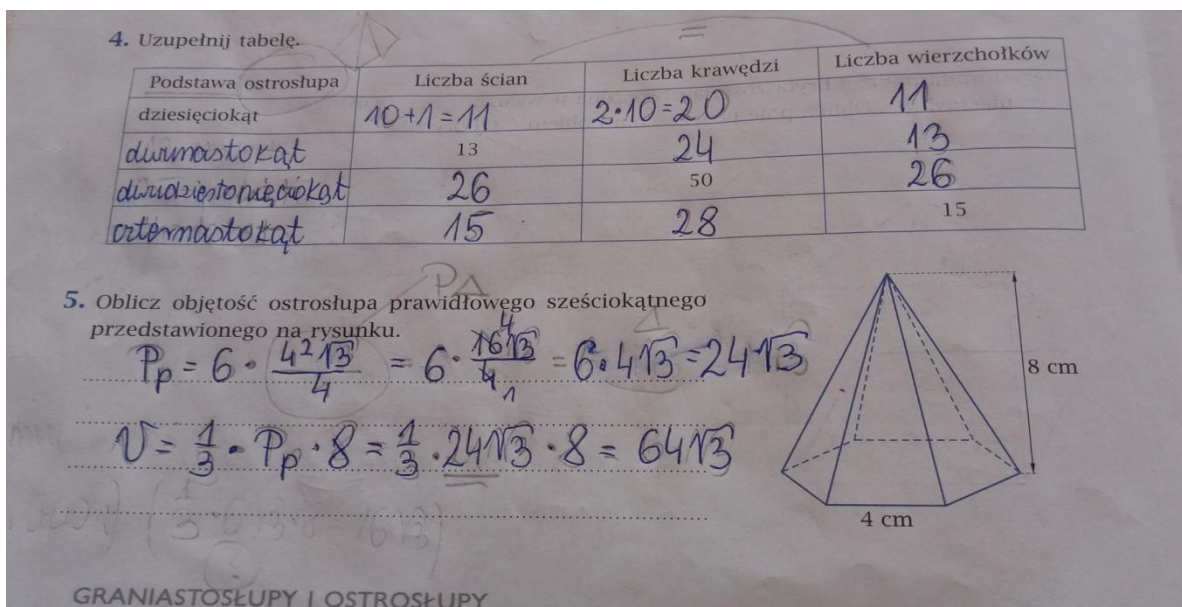 4. Uzupełnij tabelę.
=
Podstawa ostrosłupa Liczba ścian Liczba krawędzi Liczba wierzchołków
dziesięciokąt 10+1=11 2·10=20 11
dwunastokąt 13 24 13
dwudziestopięciokąt 26 50 26
czternastokąt 15 28 15
P△
5. Oblicz objętość ostrosłupa prawidłowego sześciokątnego
przedstawionego na rysunku.
Pp = 6 · 4²√3/4 = 6 · 16√3/4 4 1 = 6·4√3 = 24√3
8 cm
V = 1/3 · Pp · 8 = 1/3 · 24√3 · 8 = 64√3
4 cm
GRANIASTOSŁUPY I OSTROSŁUPY